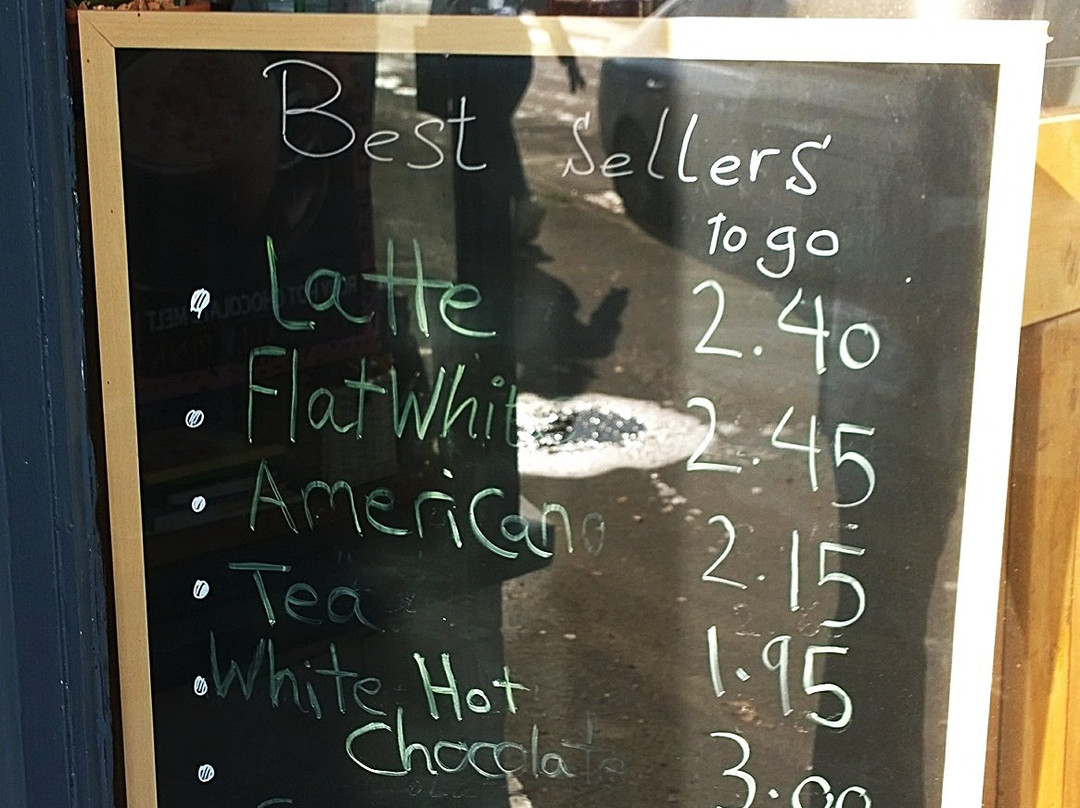 Best Sellers
to go
Latte 2.40
Flat White 2.45
Americano 2.15
Tea 1.95
White Hot
Chocolate 3.00